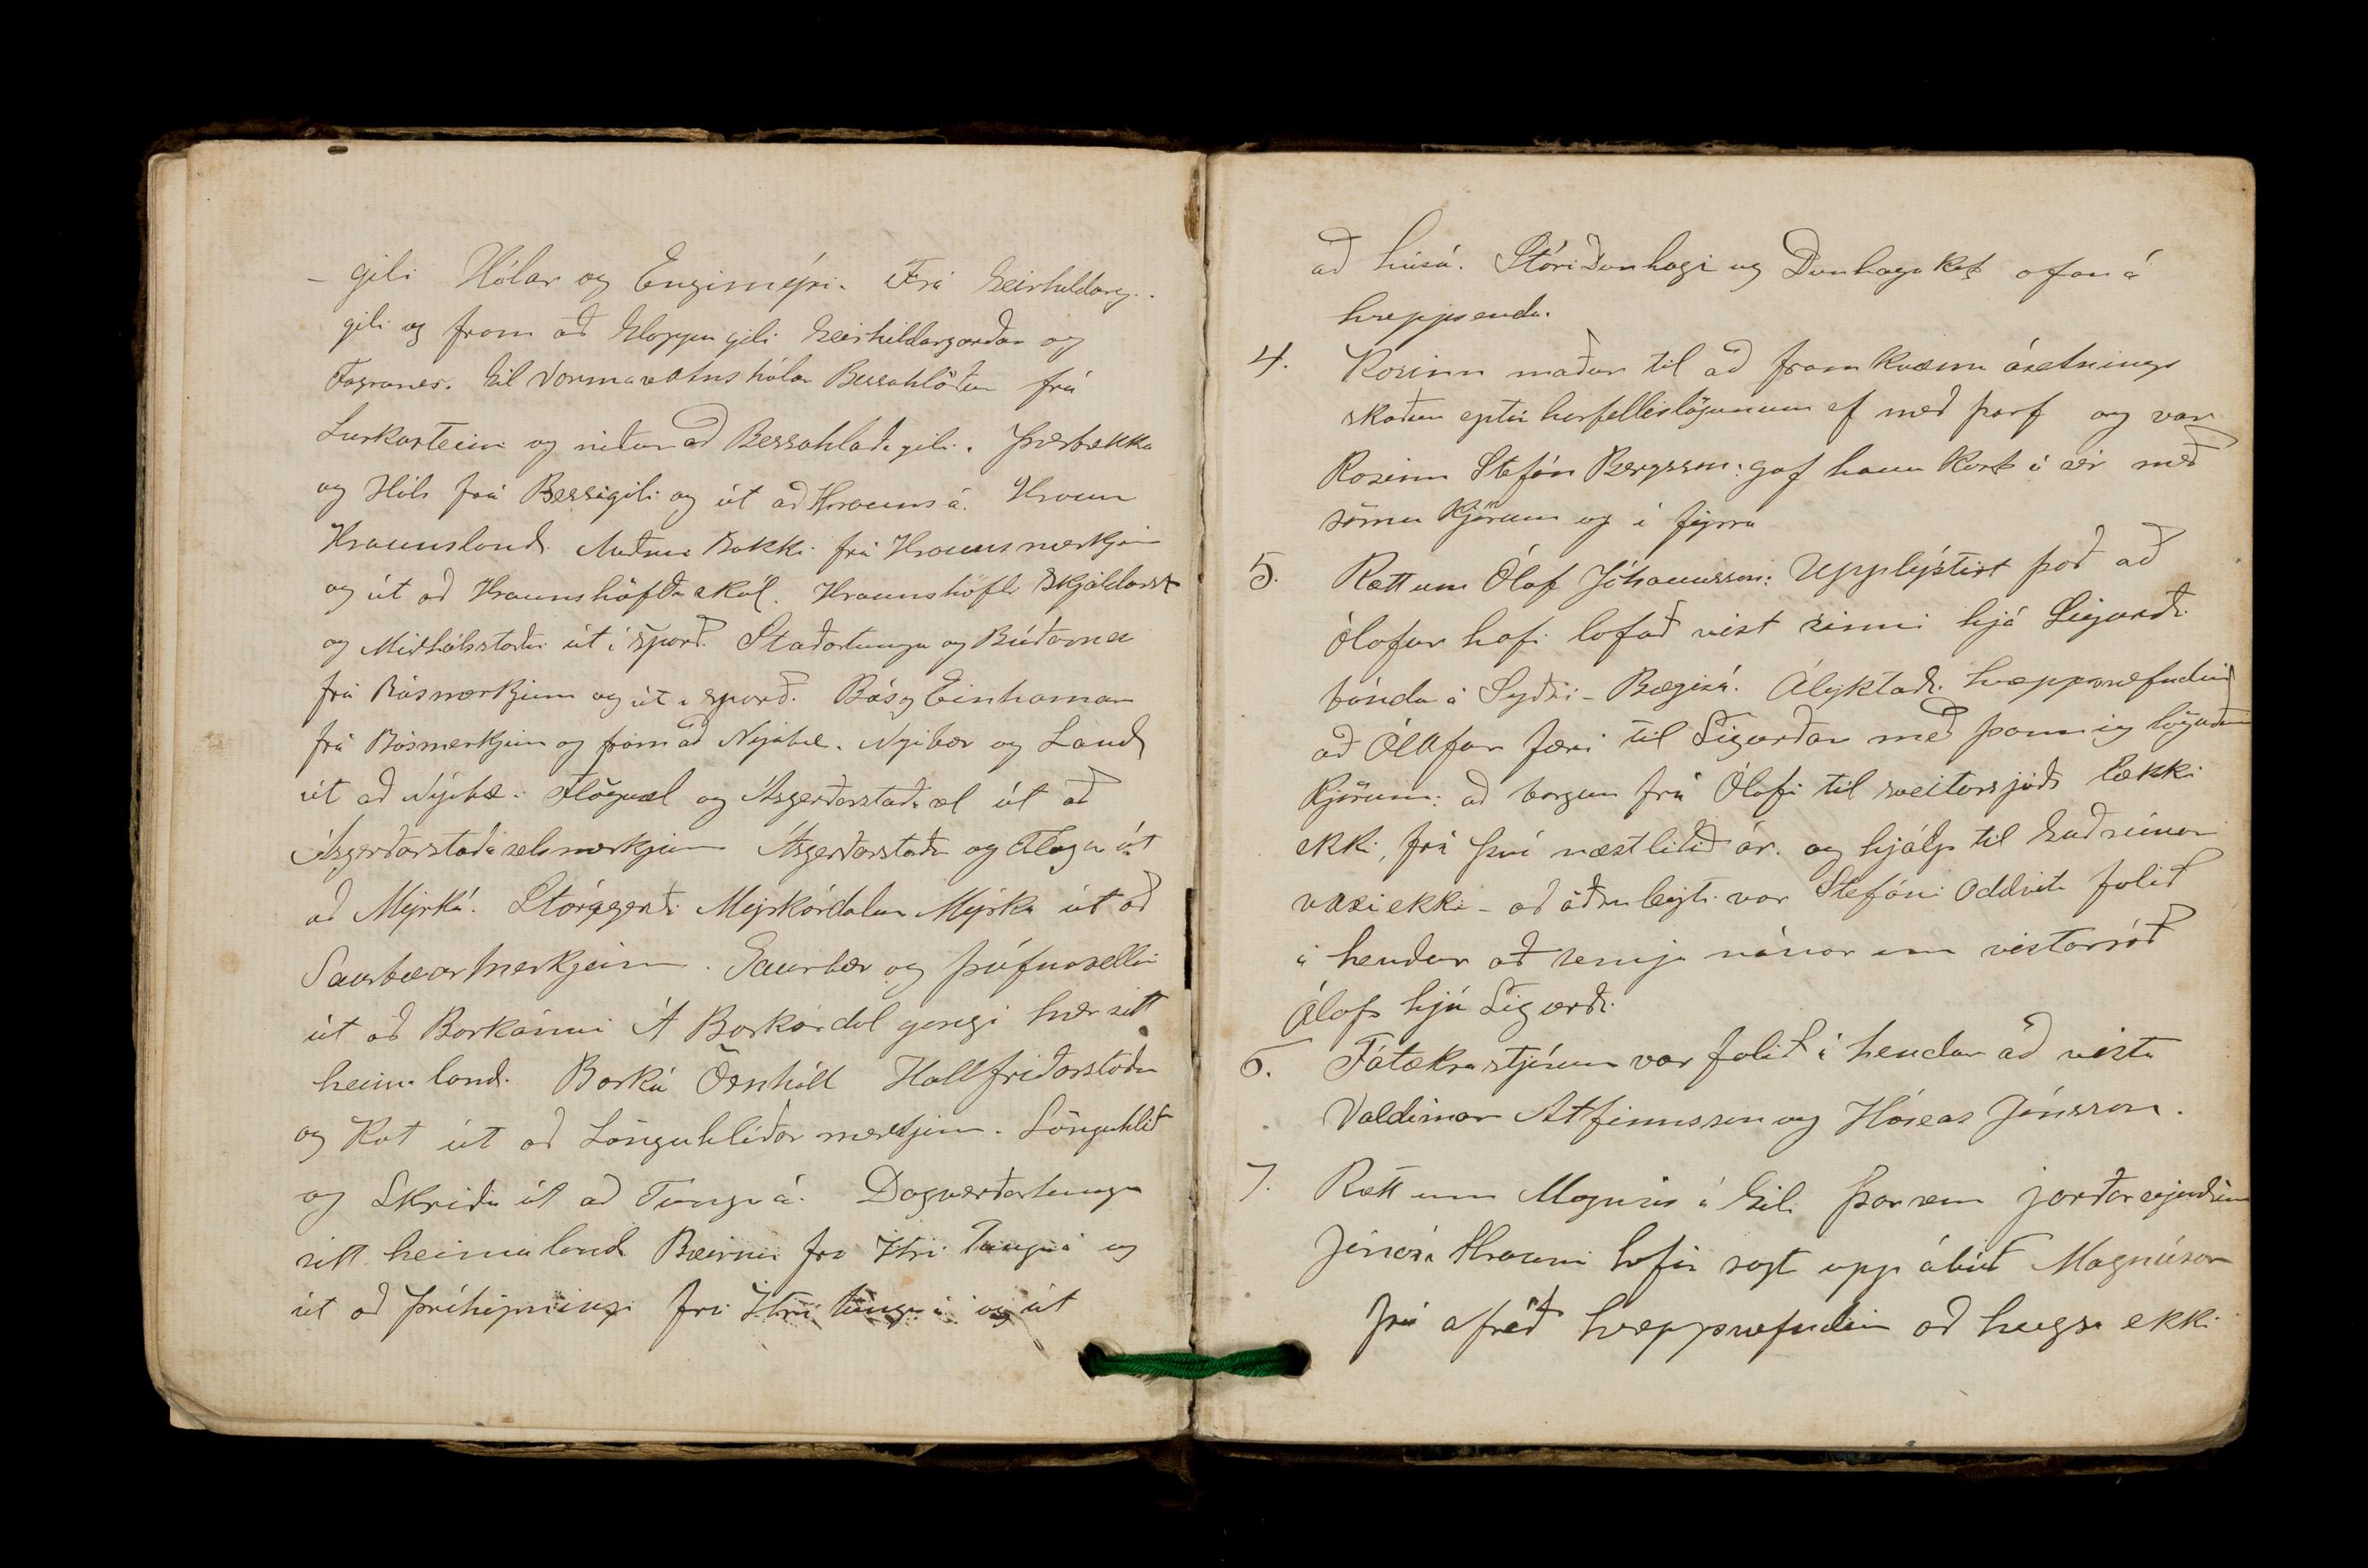 - gili Hólar og Engimýri. Frá Geirhildarg..
gili og fram að Gloppugili Geirhildargarðar og
Fagranes. Gil Varmavatnshólar Bessahlöðu frá
Lurkasteini og niður að Bessahlaðagili. Þverbrekka
og Hóls frá Bessagili og út að Hraunsá. Hraun
Hraunslandi. Auðnir Bakki frá Hraunsmerkjum
og út að Hraunshöfða skál. Hraunshöfði Skjaldarst
og Miðhálsstaðir út í sporð. Staðartunga og Búðarnes
frá Básmerkjum og út í sporð. Bás og Einhamar
frá Básmerkjum og fram að Nýjabæ. Nýibær og Landi
út að Nýjabæ. Flögusel og Ásgerðarstaðasel út að
Ásgerðarstaðaselsmerkjum Ásgerðarstaðir og Flaga út
að Mýrká. Stóragerði Myrkárdalur Mýrká út að
Saurbæarmerkjum. Saurbær og Þúfnavellir
út að Barkánni Á Barkárdal gangi hver sitt
heimaland. Barká Öxnhóll Hallfríðarstaðir
og Kot út að Lönguhlíðar merkjum. Lönguhlíð
og Skriða út að Tunguá. Dagverðartunga
sitt heimaland Bæirnir frá Itri Tunguá og
út að Þríhyrningi frá Itri tunguá og út
að húsá. Stóri Dunhagi og Dunhagakot ofan á
hreppsenda.
4. Kosinn maður til að framkvæma ásetnings
skoðun eptir horfellislögunum ef með þarf og var
Kosinn Stefán Bergsson: gaf hann kost á sér með
sömu kjörum og í fyrra
5. Rætt um Ólaf Jóhannsson: Upplýstist það að
Ólafur hafi lofað vist sinni hjá Sigurði
bónda á Syðri-Bægisá. Ályktaði hreppsnefndin
að Ólafur færi til Sigurðar með þannig löguðum
kjörum: að borgun frá Ólafi til sveitarsjóðs lækki
ekki, frá því næstliðið ár. og hjálp til Guðrúnar
vaxi ekki - að öðru leyti var Stefáni Oddvita falið
á hendur að semja nánar um vistarráð
Ólafs hjá Sigurði
6. Fátækrastjórum var falið á hendur að vista
Valdimar Arfinnsson og Hóseas Jónsson.
7. Rætt um Magnús á Gili Þar sem jarðareigandinn
Jónas á Hrauni hefir sagt upp ábúð Magnúsar
þá afréð hreppsnefndin að hugsa ekki